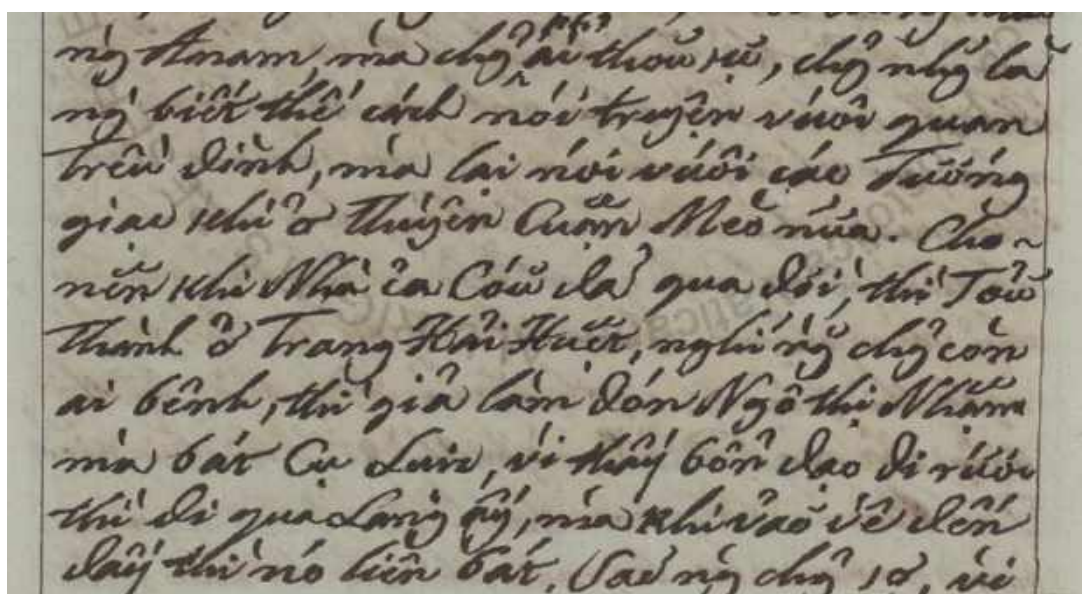 ng̃ Anam, mà chg̉ ai thoŭ sŭ, chg̉ nhg̃ là
ng̃ biết thế cách nói truyện vuới quan
trêu đình, mà lại nói vuới các Tướng
giac khi ở thuyền Cuăn Mèo nữa. Cho-
nên khi Nhà ća Cóŭ đã qua đời, thì Toŭ
thành ở Trang Hải Huết, nghĩ rg̀ chg̉ còn
ai bênh, thì giả làm đón Ngô thị Nhăm
mà bắt Cụ Luis, vì thấy bổn đạo đi rước
thì đi qua Làng ấy, mà khi vào về đến
đấy thì nó liền bắt. Sáo ng̃ chg̉ sợ, vì